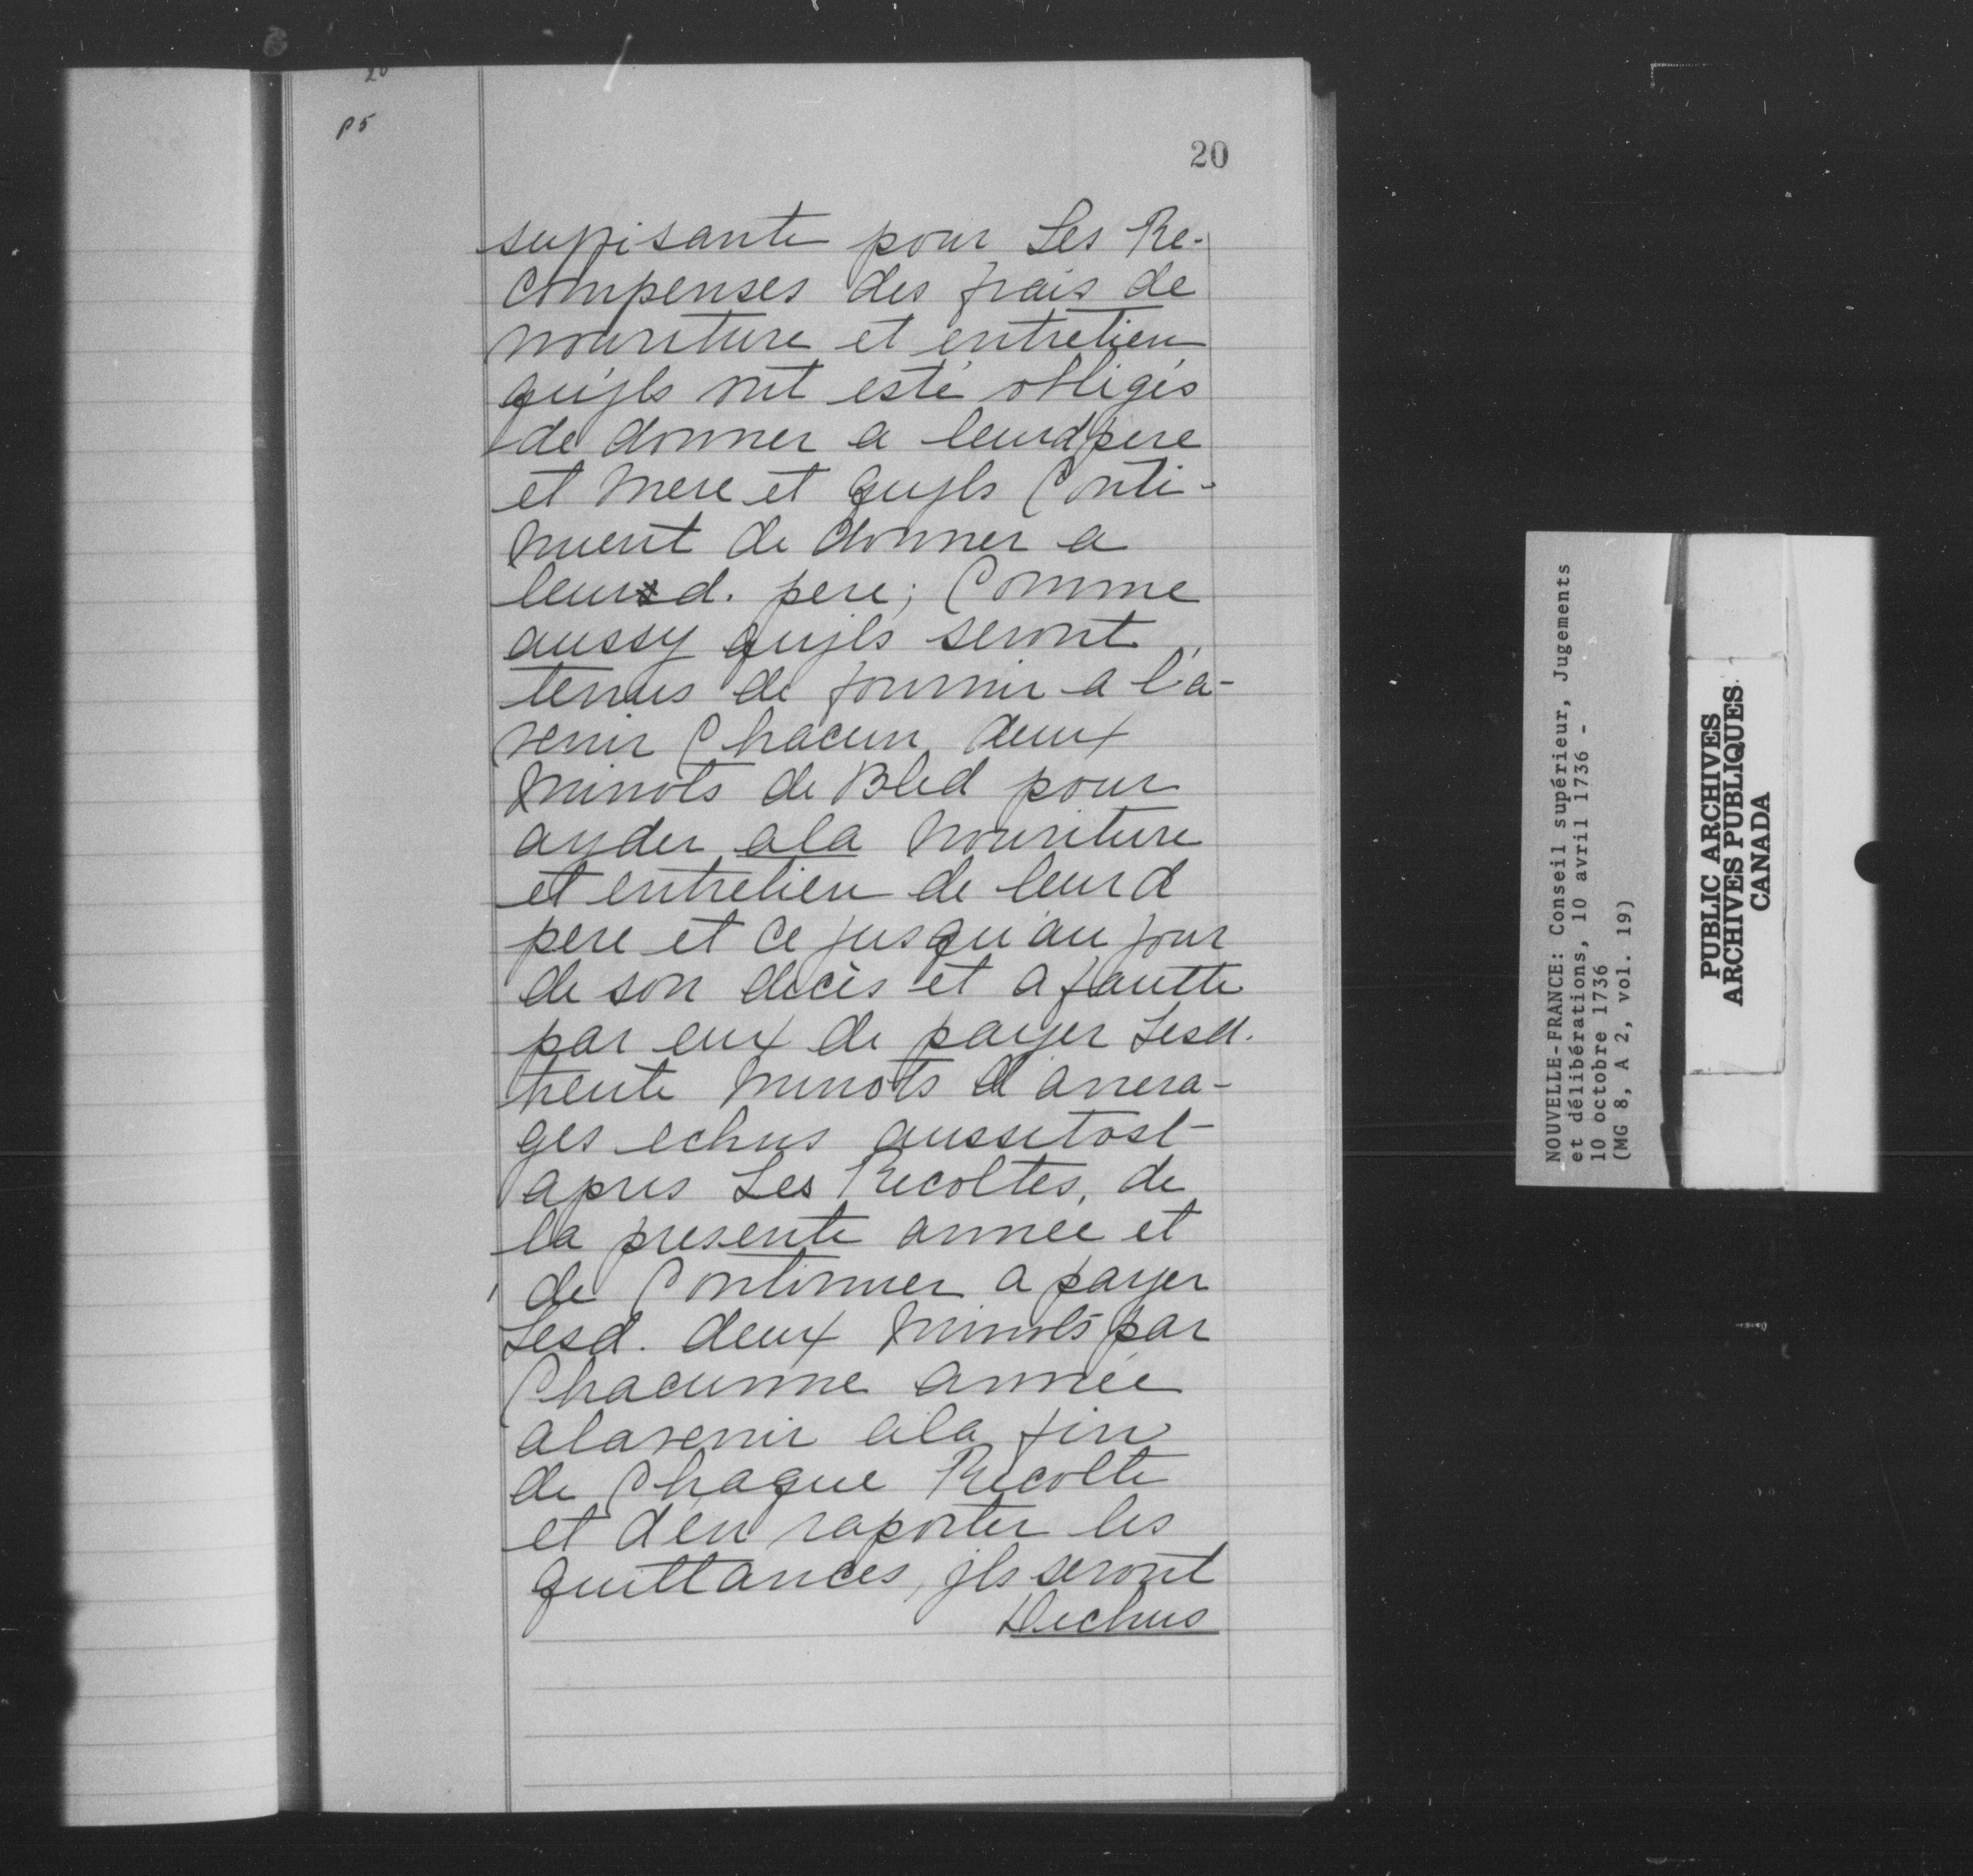 20
p5
20
suffisante pour Les Re-
compenses des frais de
nouriture et entretien
qu'jls ont esté obligés
de donner a leurd pere
et mere et qu'jls Conti-
nuent de donner a
leurs d. pere; Comme
aussy qu'jls seront
tenus de fournir a l'a-
venir Chacun deux
minots de Bled pour
ayder ala nouriture
et entretien de leur d
pere et ce jusqu'au jour
de son decès et a fautte
par eux de payer Lesd.
trente minots d'arrera-
ges echus aussitost
apres Les Recoltes, de
la presente année et
de Continuer a payer
Lesd. deux minots par
Chacunne année
alavenir ala fin
de Chaque Recolte
et d'en raporter les
quittances, jls seront
Dechus
NOUVELLE-FRANCE: Conseil supérieur, Jugements
et délibérations, 10 avril 1736 -
10 octobre 1736
(MG 8, A 2, vol. 19)
PUBLIC ARCHIVES
ARCHIVES PUBLIQUES
CANADA